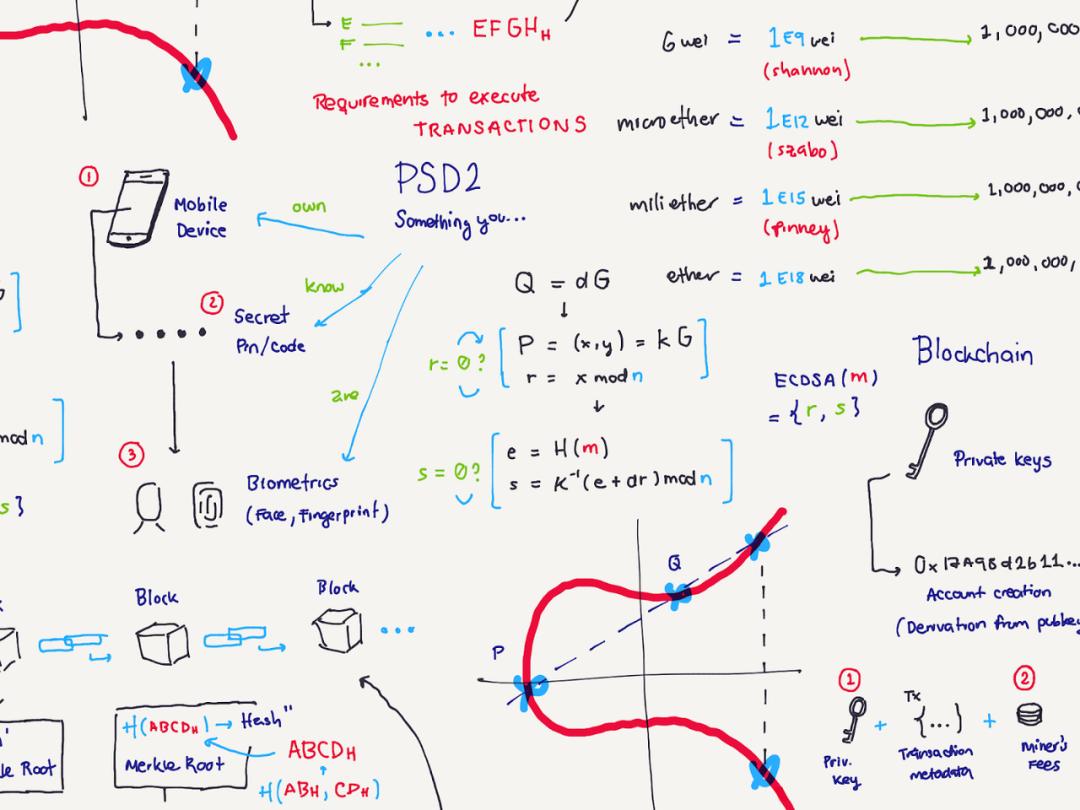 E
F
...
... EFGHH
Requirements to execute
TRANSACTIONS
Gwei = 1E9 wei
(shannon)
microether = 1E12 wei
(szabo)
1,000,000,
miliether = 1E15 wei
(finney)
1,000,000,
ether = 1E18 wei
1,000,000,
PSD2
Something you...
own
know
are
1
Mobile
Device
2
Secret
Pin/code
3
Biometrics
(Face, Fingerprint)
Q = dG
r = 0?
P = (x,y) = kG
r = x mod n
s = 0?
e = H(m)
s = K⁻¹(e + dr) mod n
ECDSA(m)
= {r, s}
mod n
s}
Blockchain
Private keys
0x17A98d2b11...
Account creation
(Derivation from pubkey
1
Priv.
Key
+
Tx
{...}
Transaction
metadata
+
2
Miner's
Fees
Block
Block
...
Q
P
le Root
H(ABCDH) → Hash"
Merkle Root
ABCDH
H(ABH, CDH)